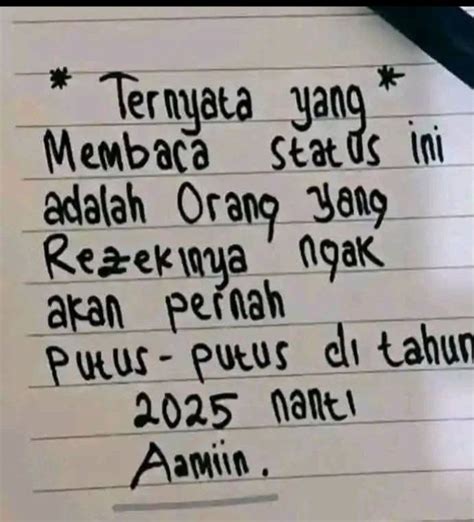 * Ternyata yang *
Membaca status ini
adalah Orang yang
Rezekinya ngak
akan pernah
Putus-putus di tahun
2025 nanti
Aamiin.